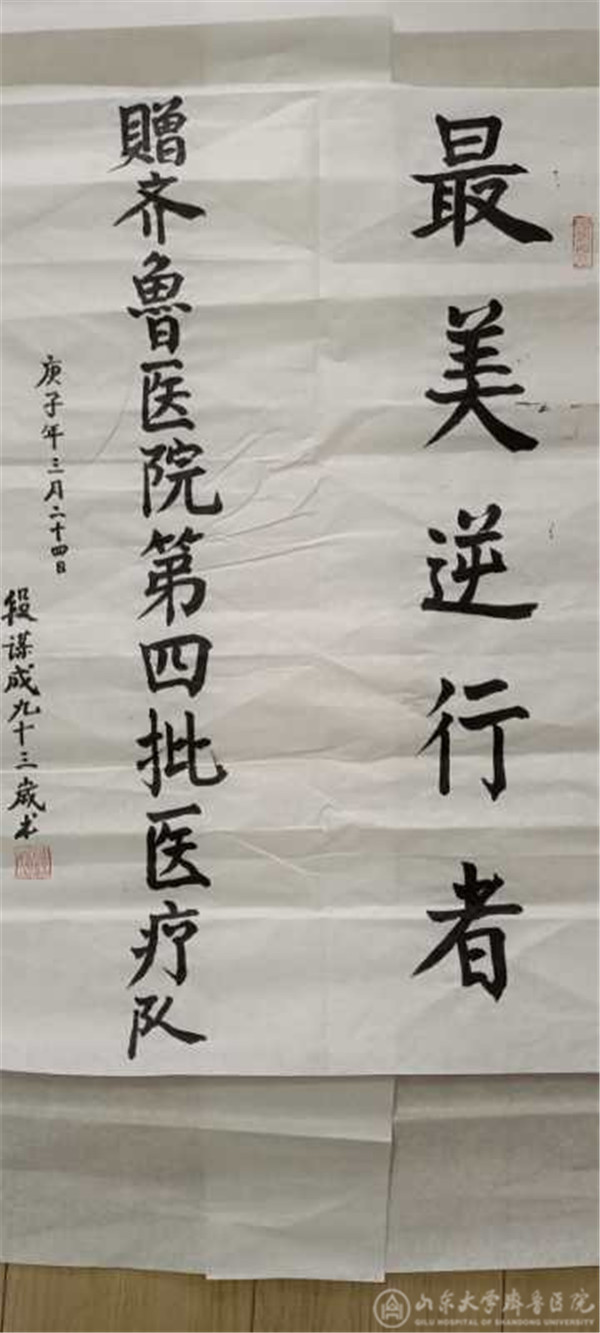 最美逆行者
贈齐魯医院第四批医疗队
庚子年三月二十四日
段謀成九十三岁书
山东大学齐鲁医院
QILU HOSPITAL OF SHANDONG UNIVERSITY